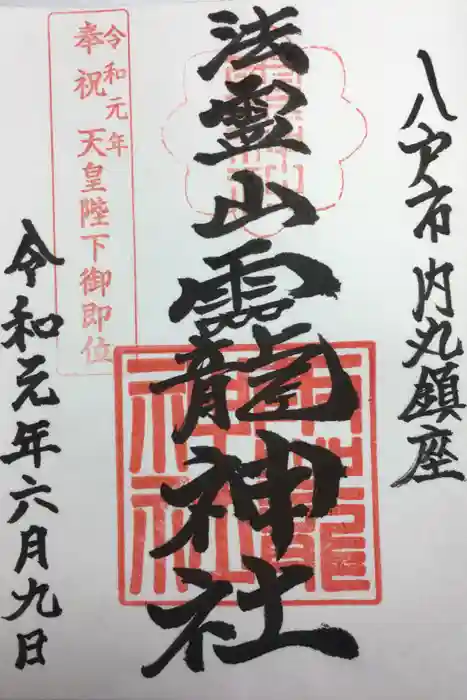 八戸市内丸鎮座
法霊山龗神社
龗
神社
令和元年
奉祝 天皇陛下御即位
令和元年六月九日